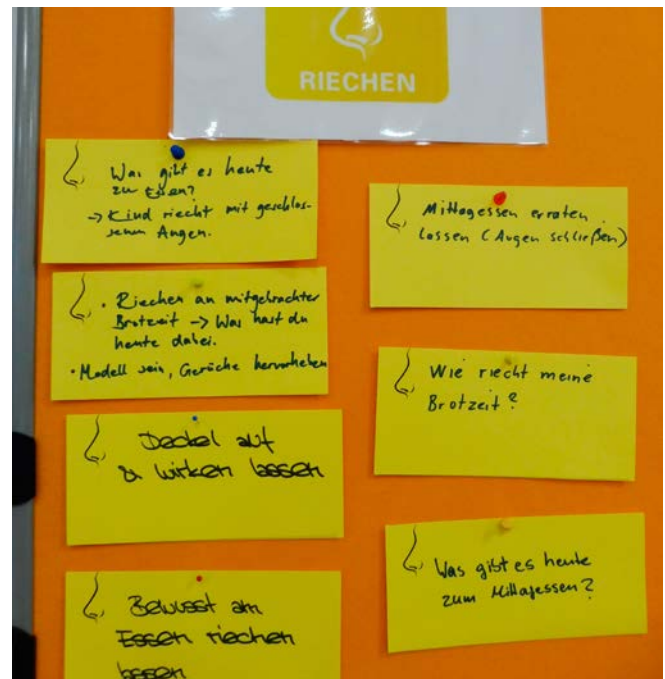 RIECHEN
Was gibt es heute
zu Essen?
→ Kind riecht mit geschlos-
senen Augen.
• Riechen an mitgebrachter
Brotzeit → Was hast du
heute dabei.
• Modell sein, Gerüche hervorheben
Deckel auf
& wirken lassen
Bewusst am
Essen riechen
lassen
Mittagessen erraten
lassen (Augen schließen)
Wie riecht meine
Brotzeit?
Was gibt es heute
zum Mittagessen?